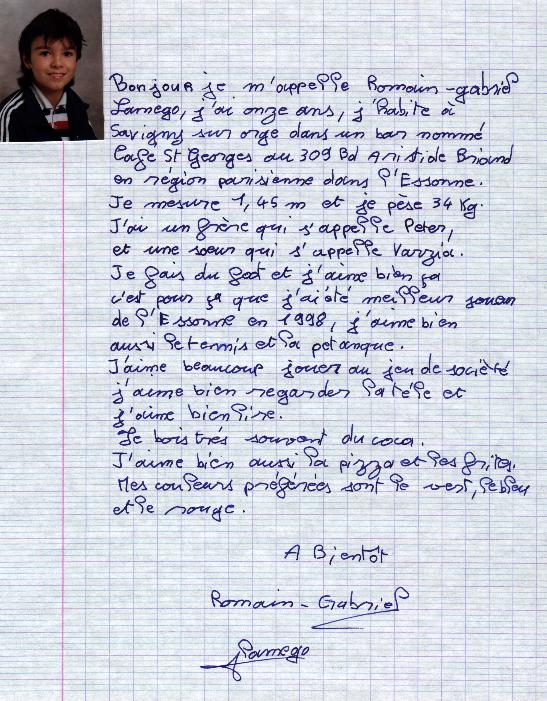 Bonjour je m'appelle Romain-gabriel
Lamego, j'ai onze ans, j'habite à
Savigny sur orge dans un bar nommé
Café St Georges au 309 Bd Aristide Briand
en région parisienne dans l'Essonne.
Je mesure 1,45 m et je pèse 34 Kg.
J'ai un frère qui s'appelle Peter,
et une sœur qui s'appelle Varzia.
Je fais du foot et j'aime bien ça
c'est pour ça que j'ai été meilleur joueur
de l'Essonne en 1998, j'aime bien
aussi le tennis et la petanque.
J'aime beaucoup jouer au jeu de société
j'aime bien regarder la téle et
j'aime bien lire.
Je bois trés souvent du coca.
J'aime bien aussi la pizza et les frites.
Mes couleurs préférées sont le vert, le bleu
et le rouge.
A Bientôt
Romain-Gabriel
Lamego